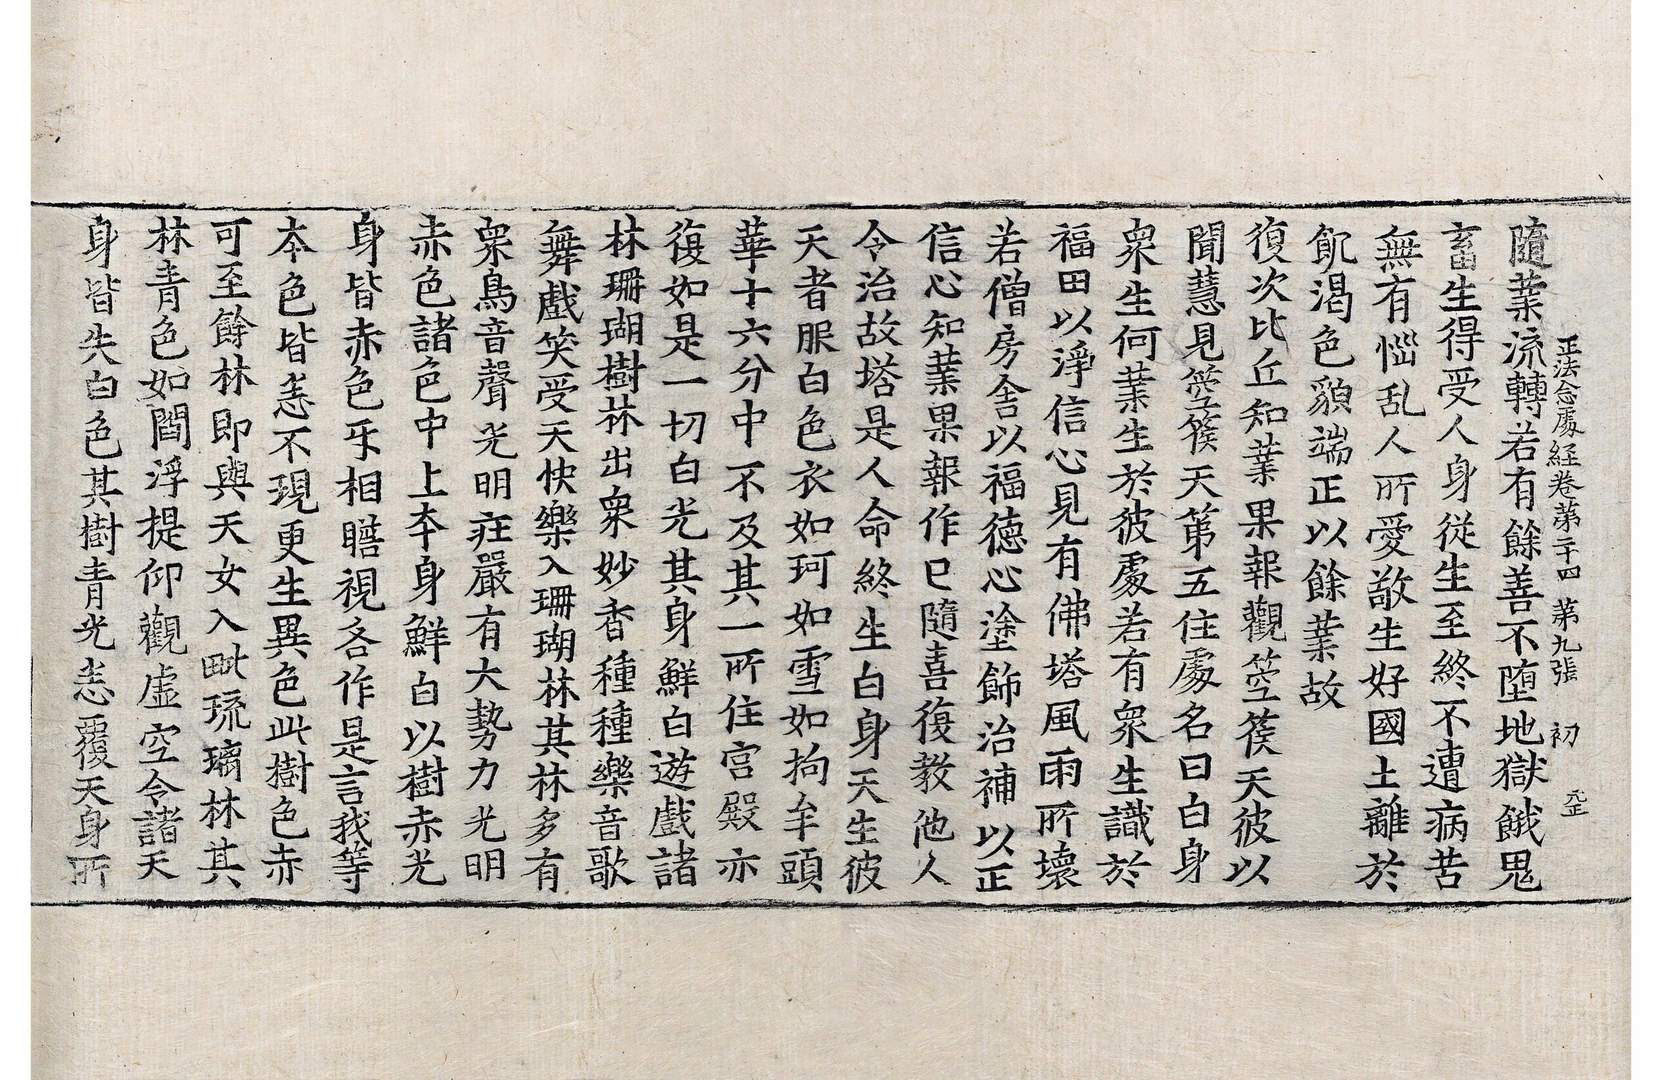 正法念處経卷第二十四 第九張 初 元正
隨業流轉若有餘善不墮地獄餓鬼
畜生得受人身從生至終不遭病苦
無有惱乱人所愛敬生好國土離於
飢渴色貌端正以餘業故
復次比丘知業果報觀箜篌天彼以
聞慧見箜篌天第五住處名曰白身
衆生何業生於彼處若有衆生識於
福田以淨信心見有佛塔風雨所壞
若僧房舍以福德心塗飾治補以正
信心知業果報作已隨喜復教他人
令治故塔是人命終生白身天生彼
天者服白色衣如珂如雪如拘牟頭
華十六分中不及其一所住宮殿亦
復如是一切白光其身鮮白遊戲諸
林珊瑚樹林出衆妙香種種樂音歌
舞戲笑受天快樂入珊瑚林其林多有
衆鳥音聲光明莊嚴有大勢力光明
赤色諸色中上本身鮮白以樹赤光
身皆赤色牙相瞻視各作是言我等
本色皆悉不現更生異色此樹色赤
可至餘林即與天女入毗琉璃林其
林青色如閻浮提仰觀虛空令諸天
身皆失白色其樹青光悉覆天身所